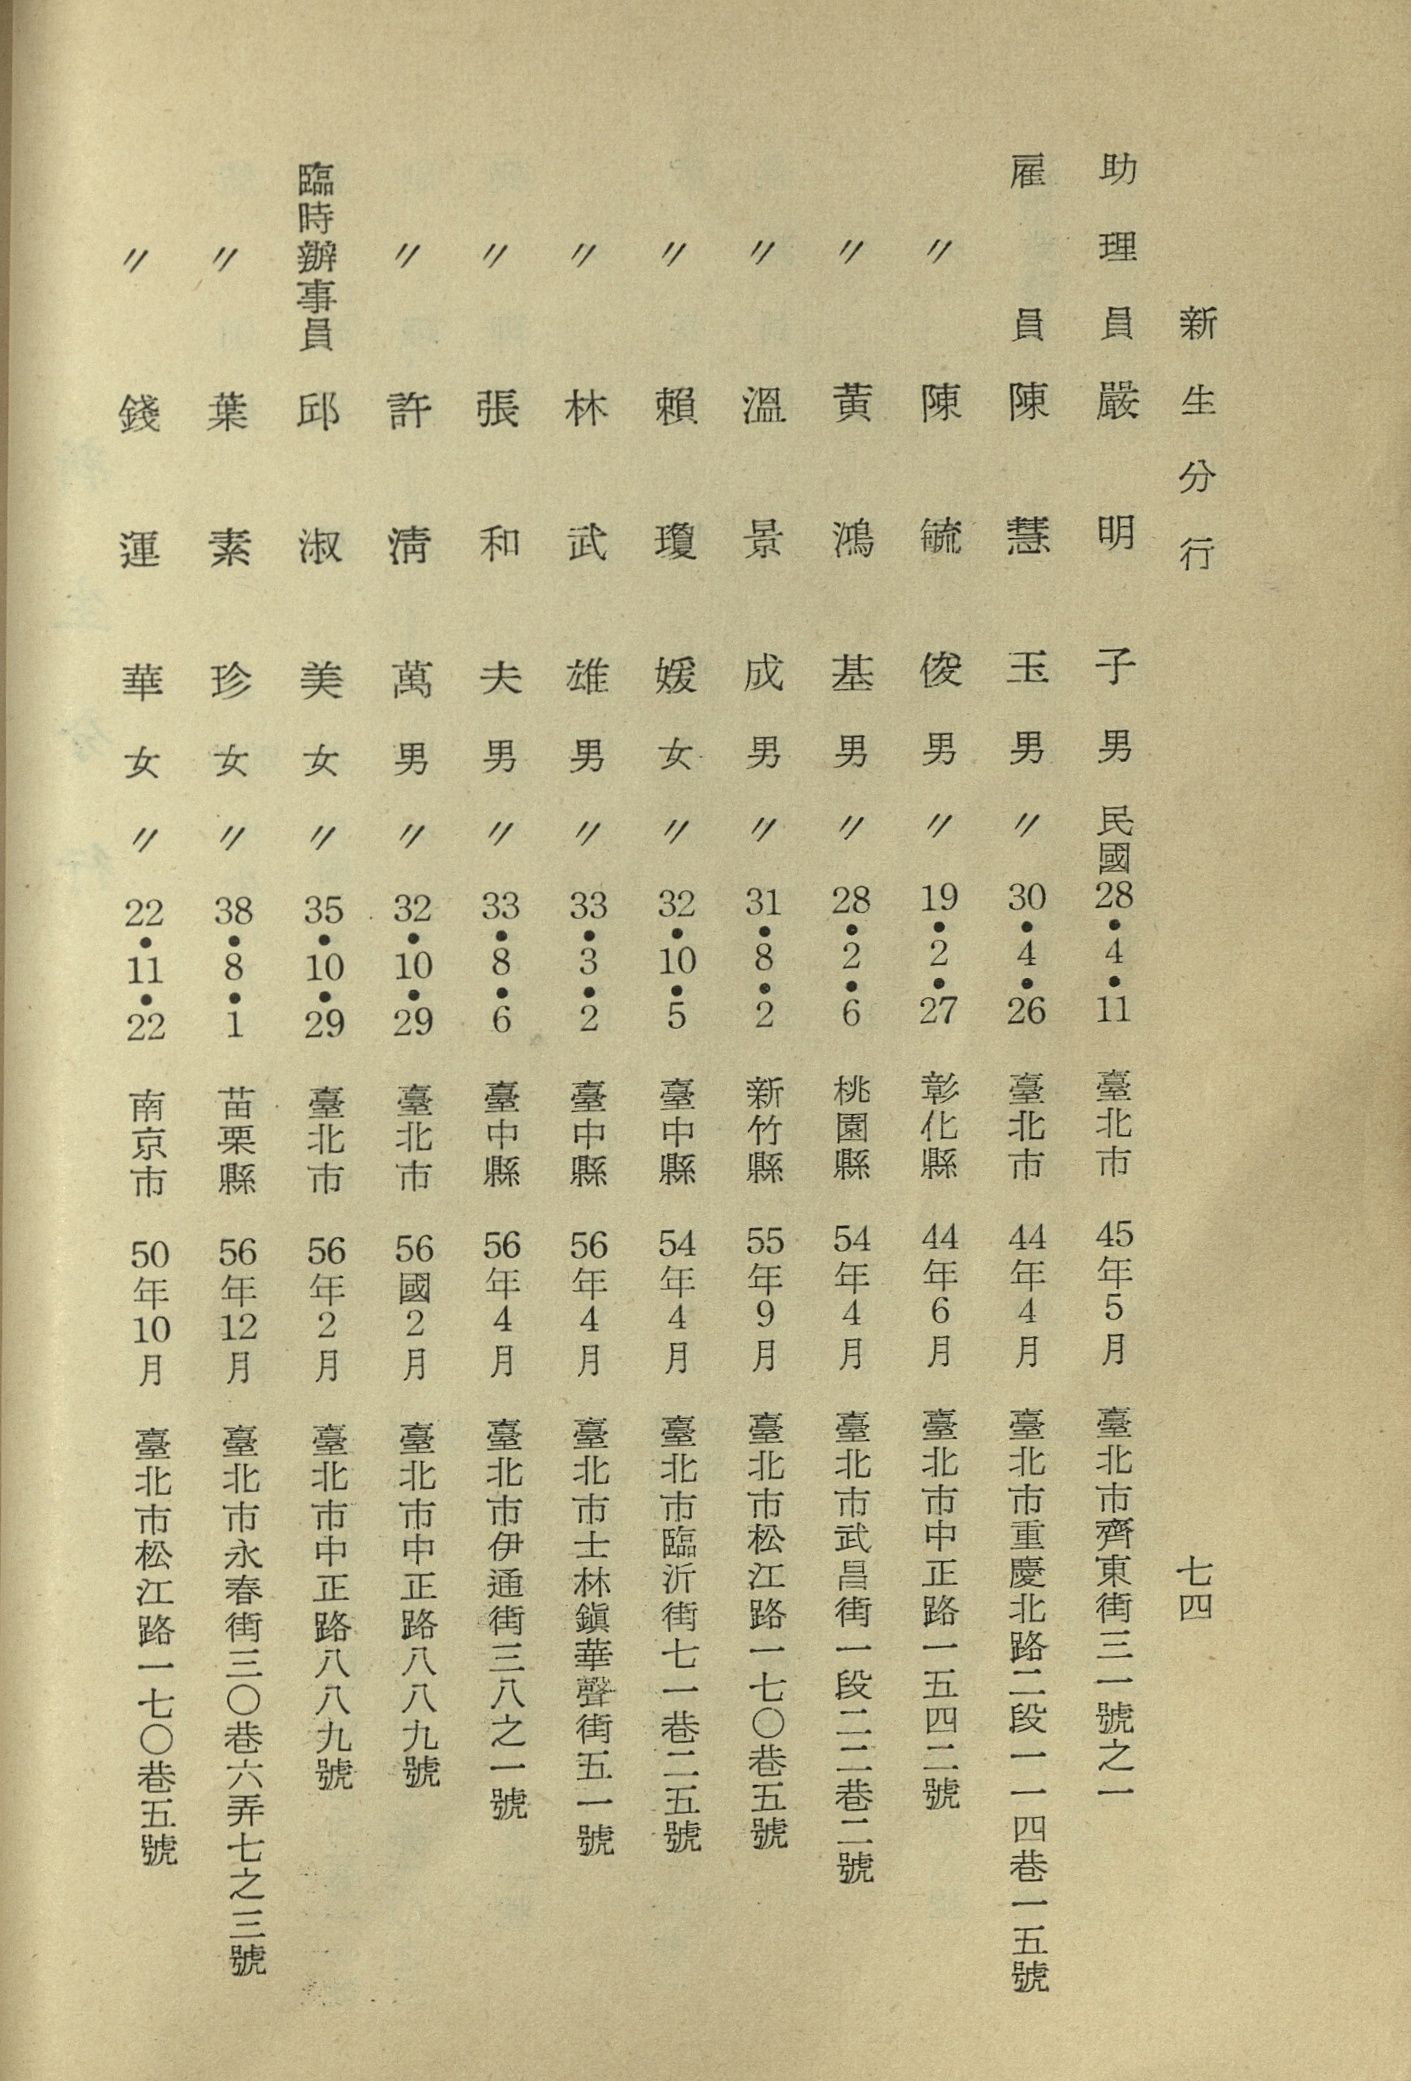 新生分行 七四
助理員 嚴明子 男 民國28•4•11 臺北市 45年5月 臺北市齊東街三一號之一
雇員 陳慧玉 男 〃 30•4•26 臺北市 44年4月 臺北市重慶北路二段一一四巷一五號
〃 陳毓俊 男 〃 19•2•27 彰化縣 44年6月 臺北市中正路一五四二號
〃 黃鴻基 男 〃 28•2•6 桃園縣 54年4月 臺北市武昌街一段二二巷二號
〃 溫景成 男 〃 31•8•2 新竹縣 55年9月 臺北市松江路一七〇巷五號
〃 賴瓊媛 女 〃 32•10•5 臺中縣 54年4月 臺北市臨沂街七一巷二五號
〃 林武雄 男 〃 33•3•2 臺中縣 56年4月 臺北市士林鎭華聲街五一號
〃 張和夫 男 〃 33•8•6 臺中縣 56年4月 臺北市伊通街三八之一號
〃 許淸萬 男 〃 32•10•29 臺北市 56國2月 臺北市中正路八八九號
臨時辦事員 邱淑美 女 〃 35•10•29 臺北市 56年2月 臺北市中正路八八九號
〃 葉素珍 女 〃 38•8•1 苗栗縣 56年12月 臺北市永春街三〇巷六弄七之三號
〃 錢運華 女 〃 22•11•22 南京市 50年10月 臺北市松江路一七〇巷五號